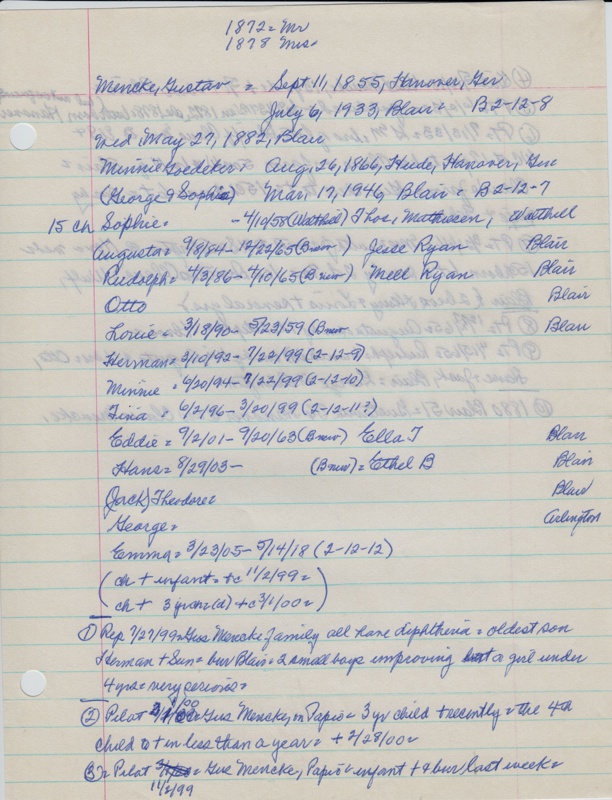 1872= Mr
1878 Mrs.
Mencke, Gustav = Sept 11, 1855, Hanover, Ger
July 6, 1933, Blair = B2-12-8
Wed. May 27, 1882, Blair
Minnie Goedeker = Aug, 26, 1866, Heide, Hanover, Ger
(George & Sophie) Mar, 17, 1946, Blair = B2-12-7
15 ch Sophie= -4/10/58 (Watthill) Thos, Mathiesen, Watthill
Augusta= 9/8/84- 12/22/65 (B new) Jesse Ryan Blair
Rudolph= 4/3/86- 4/10/65 (B new) Mell Ryan Blair
Otto Blair
Louie= 3/18/90- 5/23/59 (B new Blair
Herman= 3/10/92- 7/22/99 (2-12-9)
Minnie = 6/20/94- 7/22/99 (2-12-10)
Tina = 6/2/96- 3/20/99 (2-12-11?)
Eddie= 9/2/01- 9/20/63 (B new) Ella T Blair
Hans= 8/29/03- (B new)= Ethel B Blair
(Jack) Theodore= Blair
George= Arlington
Emma= 3/23/05- 5/14/18 (2-12-12)
(ch + infant= +c 11/2/99=
ch + 3 yr (d) +c 3/1/00=)
① Rep 7/27/99= Gus Mencke family all have diphtheria = oldest son
Herman + Sun= bur Blair= 2 small boys improving but a girl under
4 yrs= very serious=
② Pilot 3/1/00= Gus Mencke, on Papio= 3 yr child + recently= the 4th
child to + in less than a year= + 2/28/00=
③= Pilot = Gus Mencke, Papio= infant + & bur last week=
11/2/99